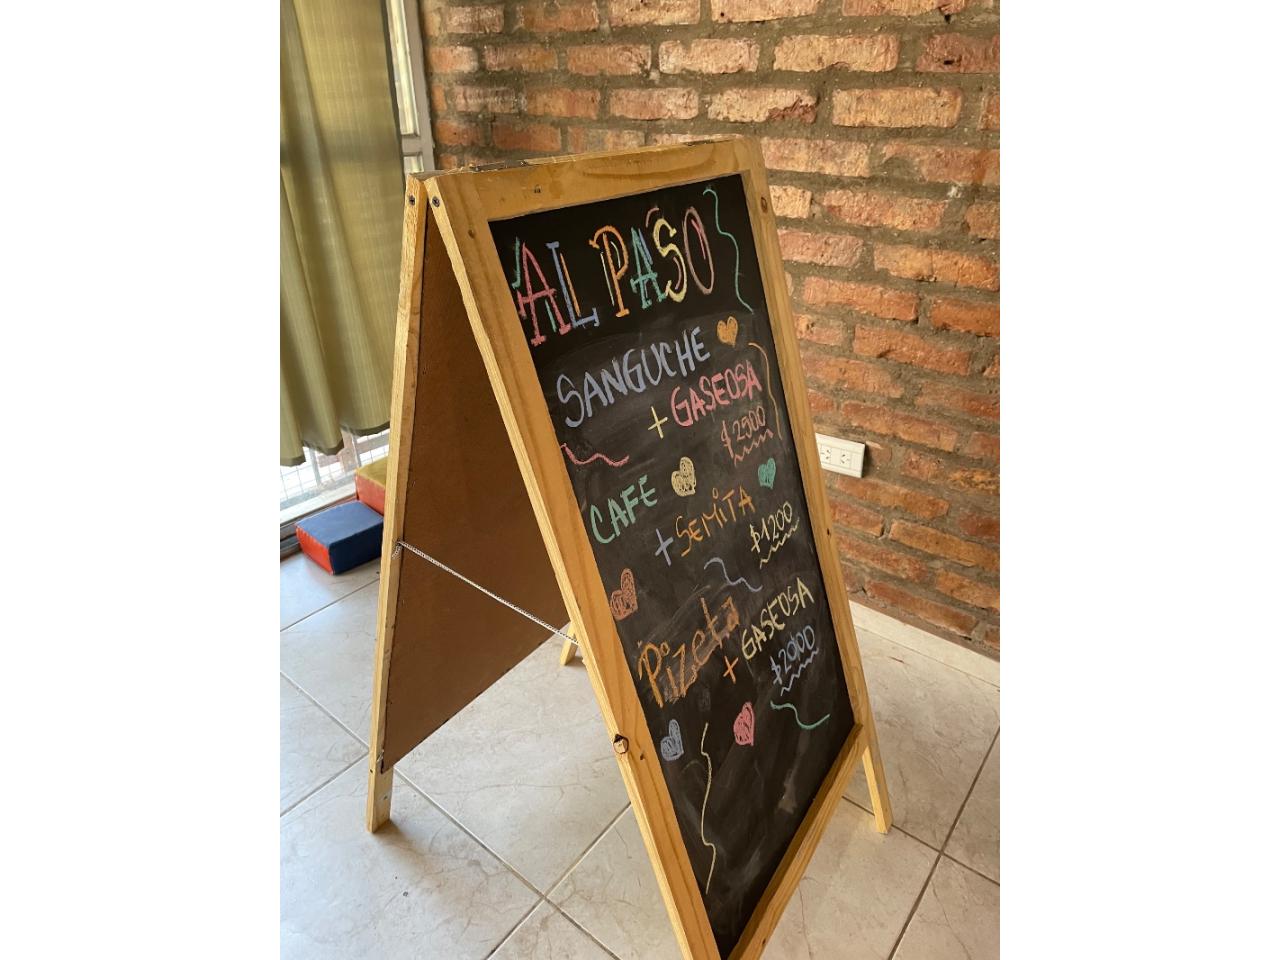 AL PASO
SANGUCHE
+ GASEOSA
$2500
CAFE
+ SEMITA
$1200
Pizeta
+ GASEOSA
$2000